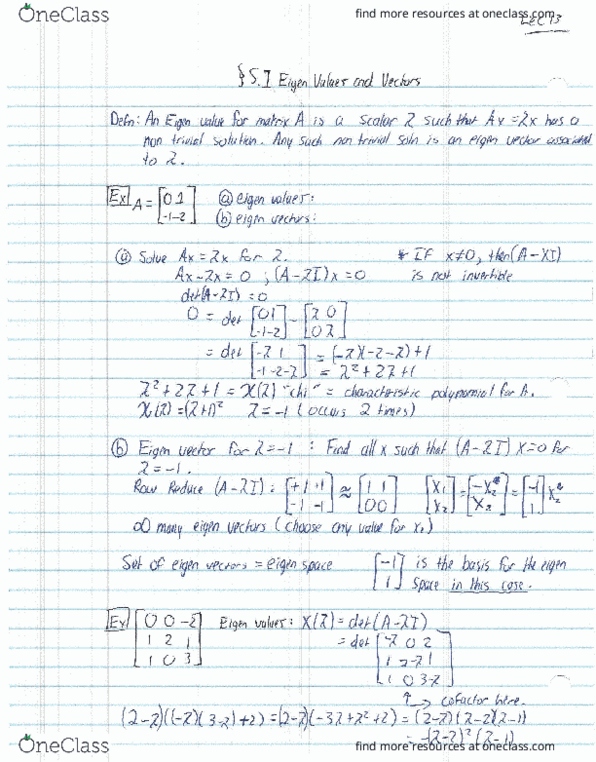 OneClass
find more resources at oneclass.com
LEC 13
§ 5.1 Eigen Values and Vectors
Defn: An Eigen value for matrix A is a scalar λ such that Ax = λx has a
non trivial solution. Any such non trivial soln is an eigen vector associated
to λ.
Ex A = [0 1 ⓐ eigen values:
-1 -2] ⓑ eigen vectors:
ⓐ Solve Ax = λx for λ. * IF x≠0, then (A - λI)
Ax - λx = 0 ; (A - λI)x = 0 is not invertible
det(A - λI) = 0
0 = det [0 1 - [λ 0
-1 -2] 0 λ]
= det [-λ 1 = (-λ)(-2-λ)+1
-1 -2-λ] = λ² + 2λ + 1
λ² + 2λ + 1 = χ(λ) "chi" = characteristic polynomial for A.
χ(λ) = (λ+1)² λ = -1 (occurs 2 times)
ⓑ Eigen vector for λ = -1 : Find all x such that (A - λI) x = 0 for
λ = -1.
Row Reduce (A - λI) : [+1 +1 ≈ [1 1 [x₁ = [-x₂ = [-1 x₂
-1 -1] 0 0] x₂] x₂] 1]
∞ many eigen vectors (choose any value for x₂)
Set of eigen vectors = eigen space [-1 is the basis for the eigen
1] space in this case.
Ex [0 0 -2 Eigen values: χ(λ) = det(A - λI)
1 2 1 = det [-λ 0 2
1 0 3] 1 2-λ 1
1 0 3-λ]
↑→ cofactor here.
(2-λ)((-λ)(3-λ)+2) = (2-λ)(-3λ+λ²+2) = (2-λ)(λ-2)(λ-1)
= -(λ-2)²(λ-1)
OneClass
find more resources at oneclass.com